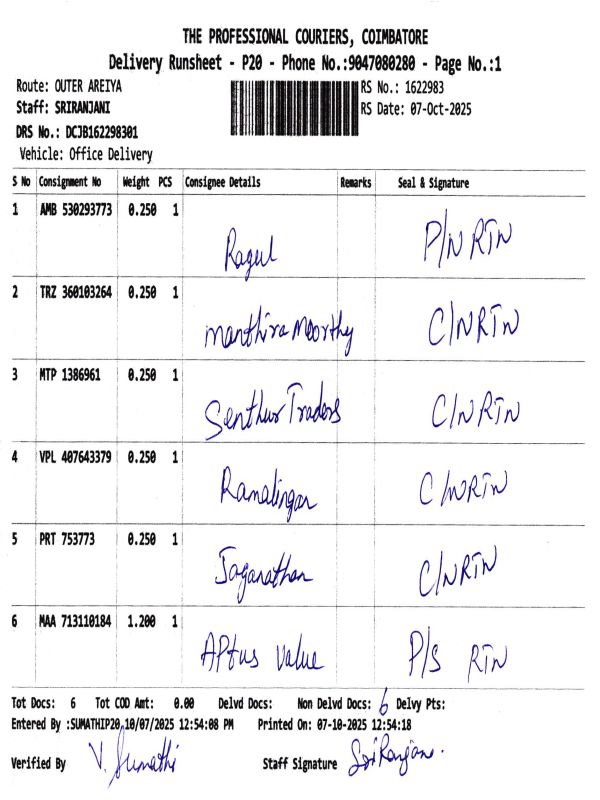 THE PROFESSIONAL COURIERS, COIMBATORE
Delivery Runsheet - P20 - Phone No.:9047080280 - Page No.:1
Route: OUTER AREIYA RS No.: 1622983
Staff: SRIRANJANI RS Date: 07-Oct-2025
DRS No.: DCJB162298301
Vehicle: Office Delivery
S No Consignment No Weight PCS Consignee Details Remarks Seal & Signature
1 AMB 530293773 0.250 1 Ragul P/N RTN
2 TRZ 360103264 0.250 1 Manthira Moorthy C/N RTN
3 MTP 1386961 0.250 1 Senthur Traders C/N RTN
4 VPL 407643379 0.250 1 Ramalingam C/N RTN
5 PRT 753773 0.250 1 Jaganathan C/N RTN
6 MAA 713110184 1.200 1 APtus value P/S RTN
Tot Docs: 6 Tot COD Amt: 0.00 Delvd Docs: Non Delvd Docs: 6 Delvy Pts:
Entered By :SUMATHIP20,10/07/2025 12:54:08 PM Printed On: 07-10-2025 12:54:18
Verified By V. Sumathi Staff Signature SriRanjani.